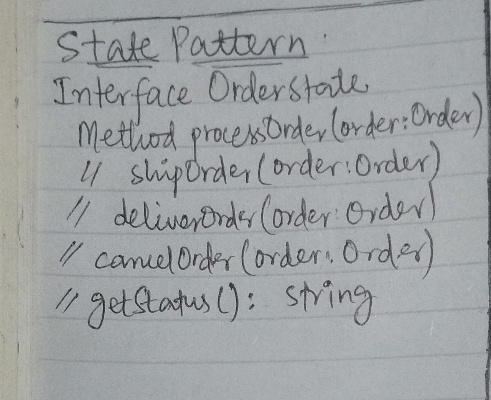 State Pattern.
Interface OrderState
Method processOrder(order:Order)
// shipOrder(order:Order)
// deliverOrder(order:Order)
// cancelOrder(order:Order)
// getStatus(): string